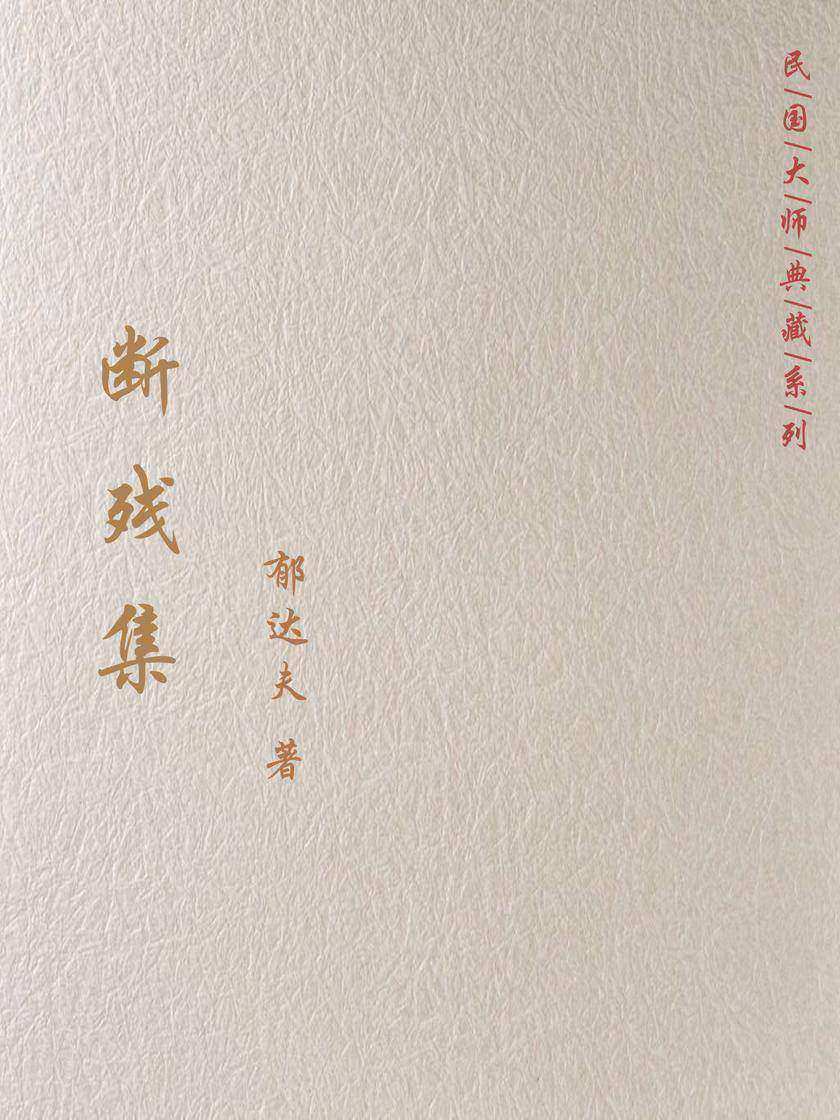 民/国/大/师/典/藏/系/列
断残集
郁达夫 著